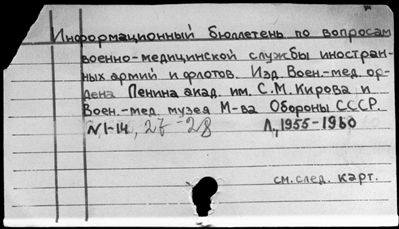 Информационный бюллетень по вопросам
военно-медицинской службы иностран-
ных армий и флотов. Изд. Воен.-мед. ор-
дена Ленина акад. им. С.М. Кирова и
Воен.-мед. музея М-ва Обороны СССР.
N1-14, 27-28 Л., 1955-1960
см. след. карт.